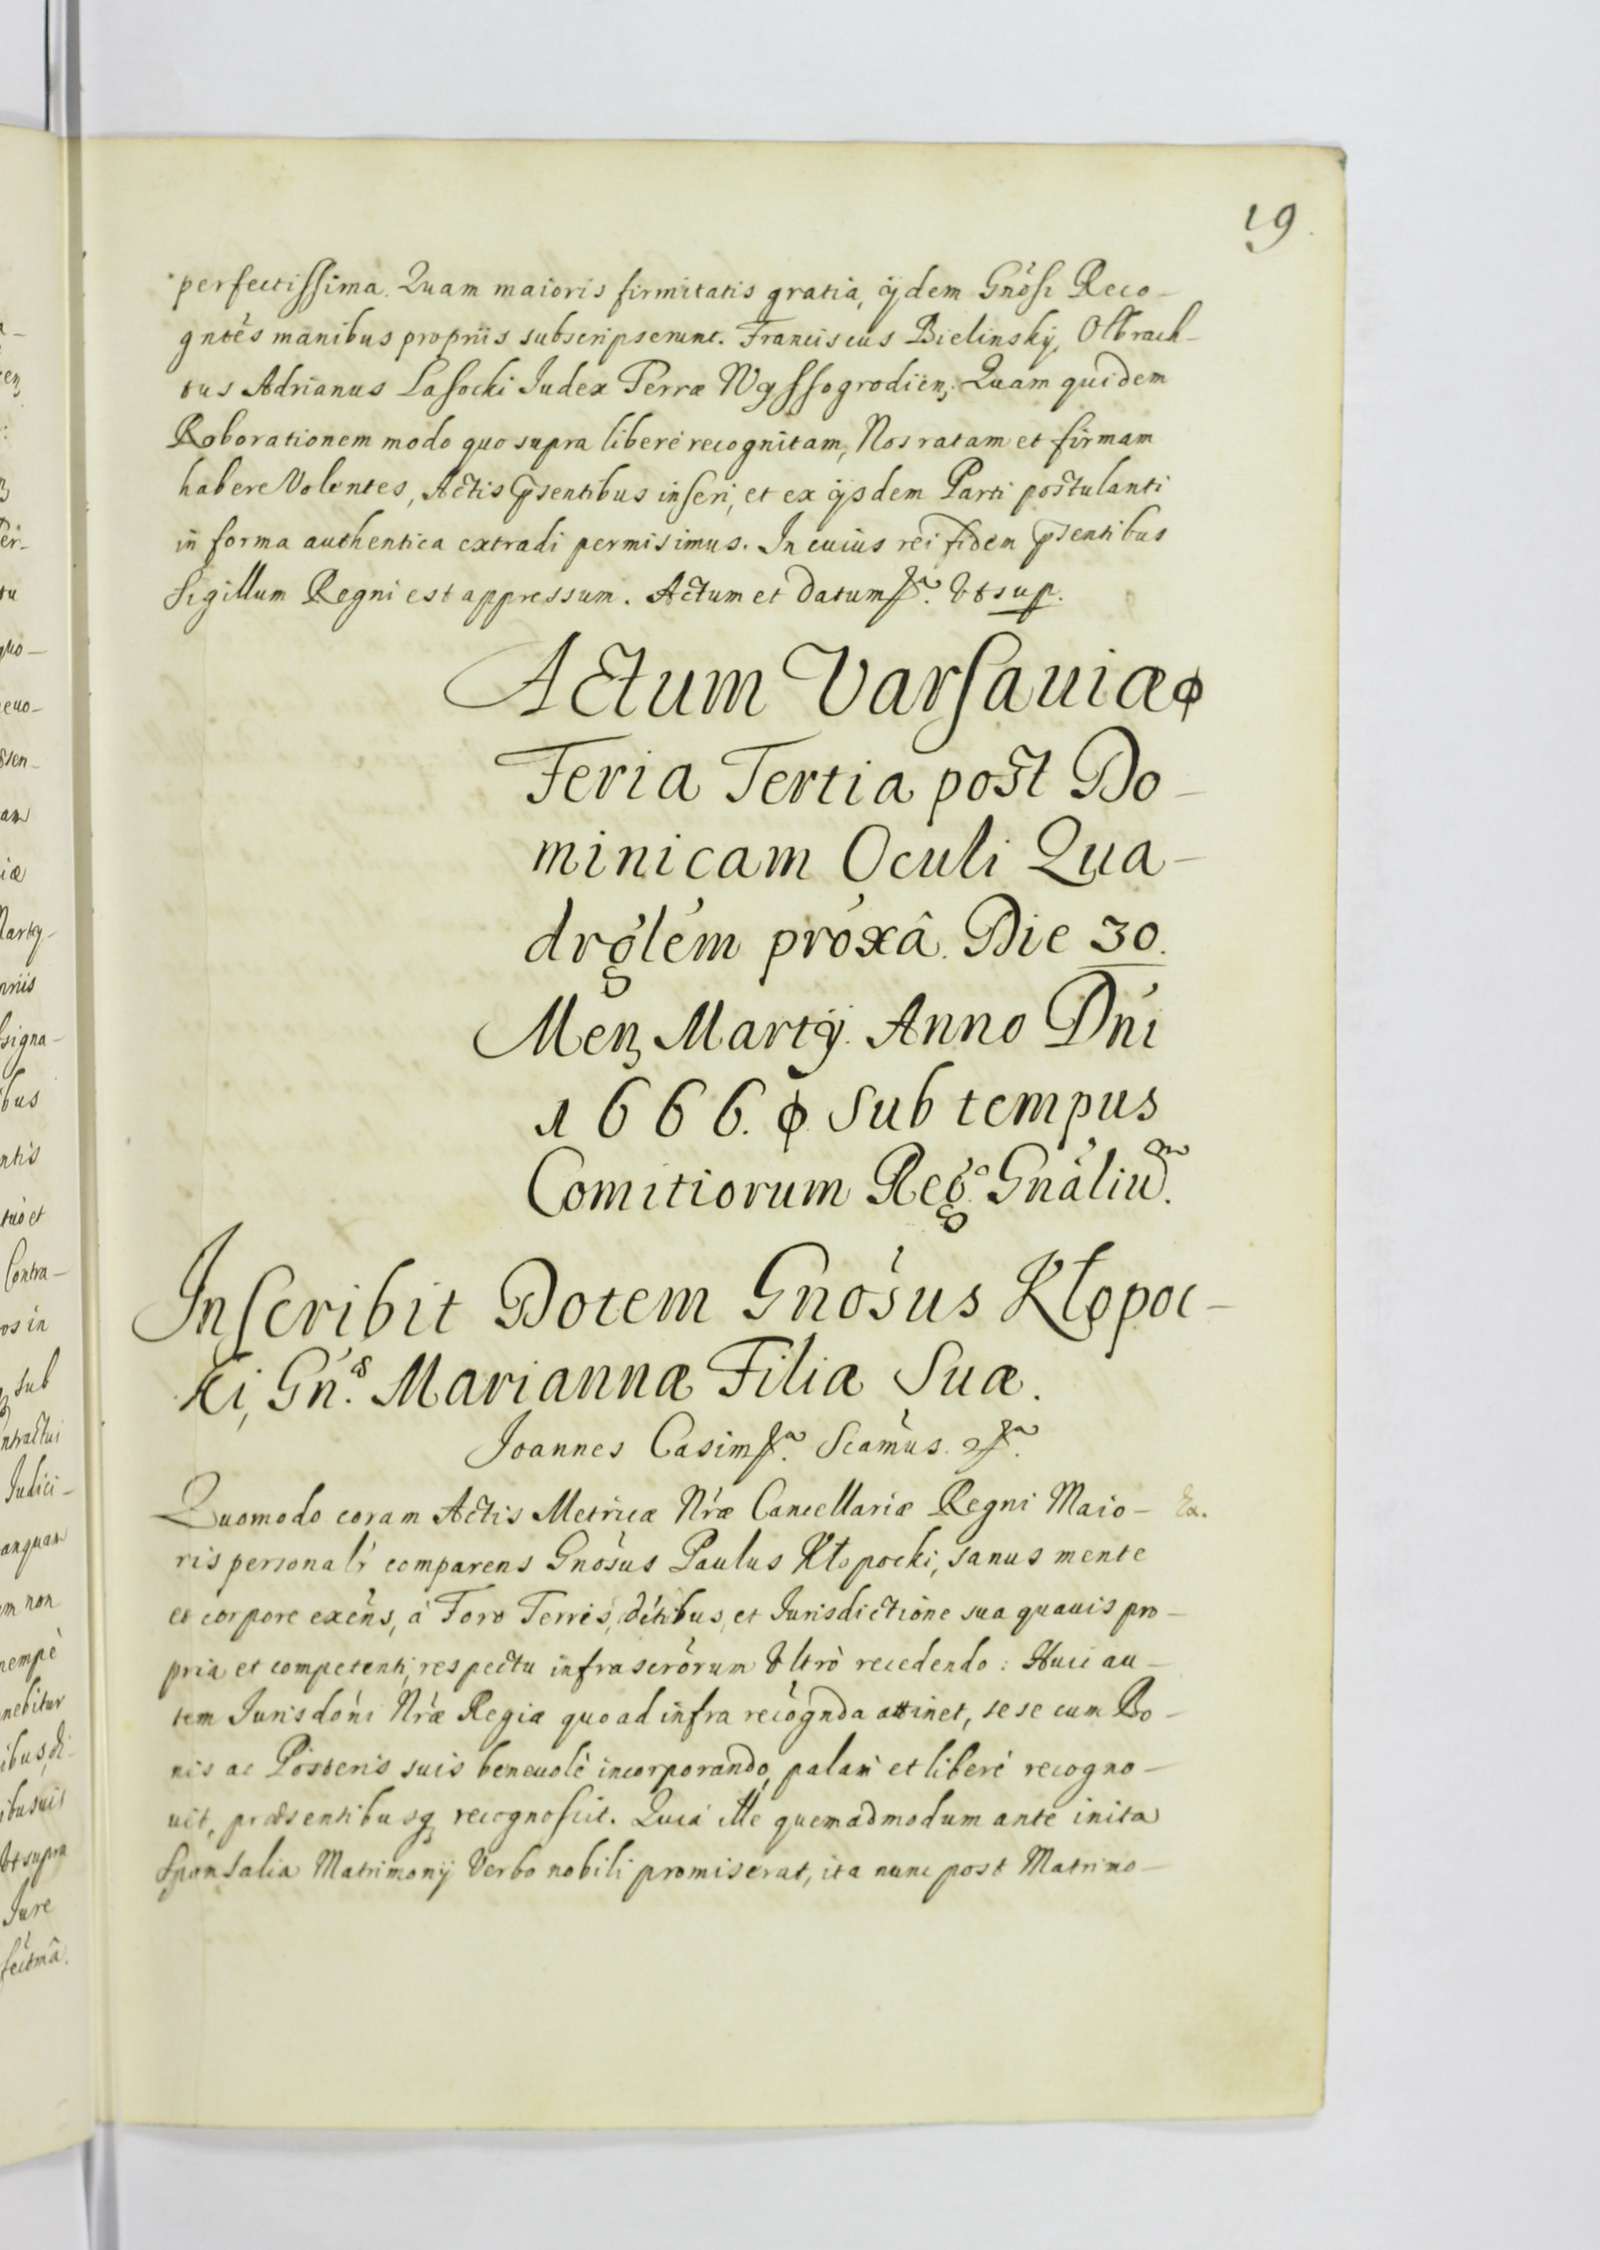 19.
perfectissima. Quam maioris firmitatis gratia, ijdem Gnosi Reco-
gntes manibus propriis subscripserunt. Franciscus Bielinsky, Olbrach-
tus Adrianus Lasocki Iudex Terræ Wyssogrodien, Quam quidem
Roborationem modo quo supra liberè recognitam, Nos ratam et firmam
habere Volentes, Actis p̄sentibus inseri, et ex ijsdem Parti postulanti
in forma authentica extradi permisimus. In cuius rei fidem p̄sentibus
Sigillum Regni est appressum. Actum et Datum Vt sup.
Actum Varsauiæ
Feria Tertia post Do-
minicam Oculi Qua-
drglém próxâ. Die 30.
Men Martij. Anno Dńi
1666. Sub tempus
Comitiorum Reg. Gnáliu.
Inscribit Dotem Gnósus Kłopoc-
ki, Gń. Mariannæ Filiæ Suæ.
Joannes Casim Scámus.
Quomodo coram Actis Metricæ Nŕæ Cancellariæ Regni Maio-
ris personalr comparens Gnósus Paulus Kłopocki, sanus mente
et corpore exéns, à Foro Terris, détibus, et Iurisdictione sua quauis pro-
pria et competenti, respectu infrascrórum Vltrò recedendo: Huic au-
tem Iurisdóni Nŕæ Regiæ quoad infra recógnda attinet, sese cum Bo-
nis ac Posteris suis beneuolè incorporando, palam et liberè recogno-
uit, præsentibusq recognoscit. Quia ille quemadmodum ante inita
Sponsalia Matrimonij Verbo nobili promiserat, ita nunc post Matrimo-